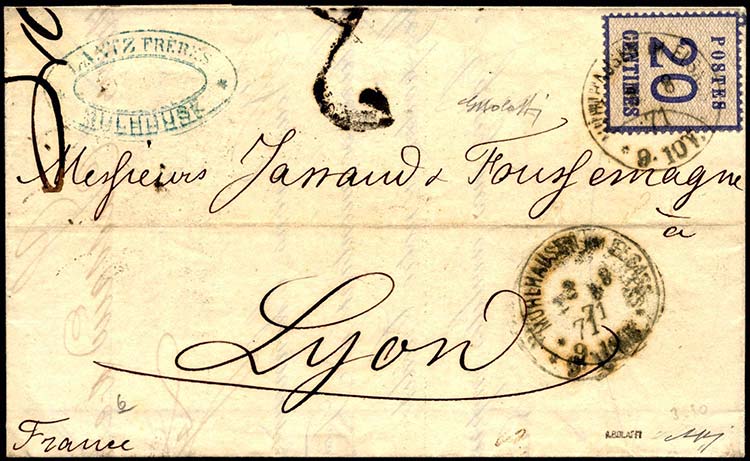 LANTZ FRÈRES
MULHOUSE
2
POSTES
20
CENTIMES
71
9-10V.
Messieurs Jarraud & Foussemagne
à
Lyon
MÜHLHAUSEN IM ELSASS
71
France
6
A.BOLAFFI
3-10